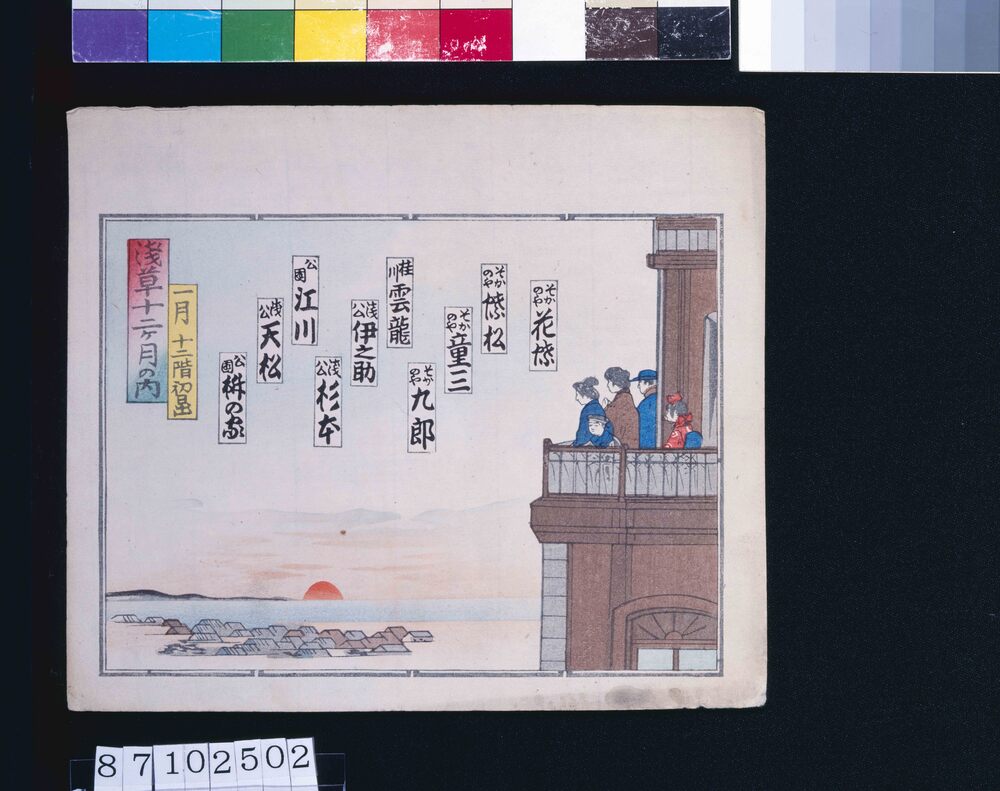 浅草十二ケ月の内
一月 十二階初日出
そかのや 花蝶
そかのや 蝶松
そかのや 童三
そかのや 九郎
桂川 雲龍
浅公 伊之助
浅公 杉本
公園 江川
浅公 天松
公園 桝の家
87102502